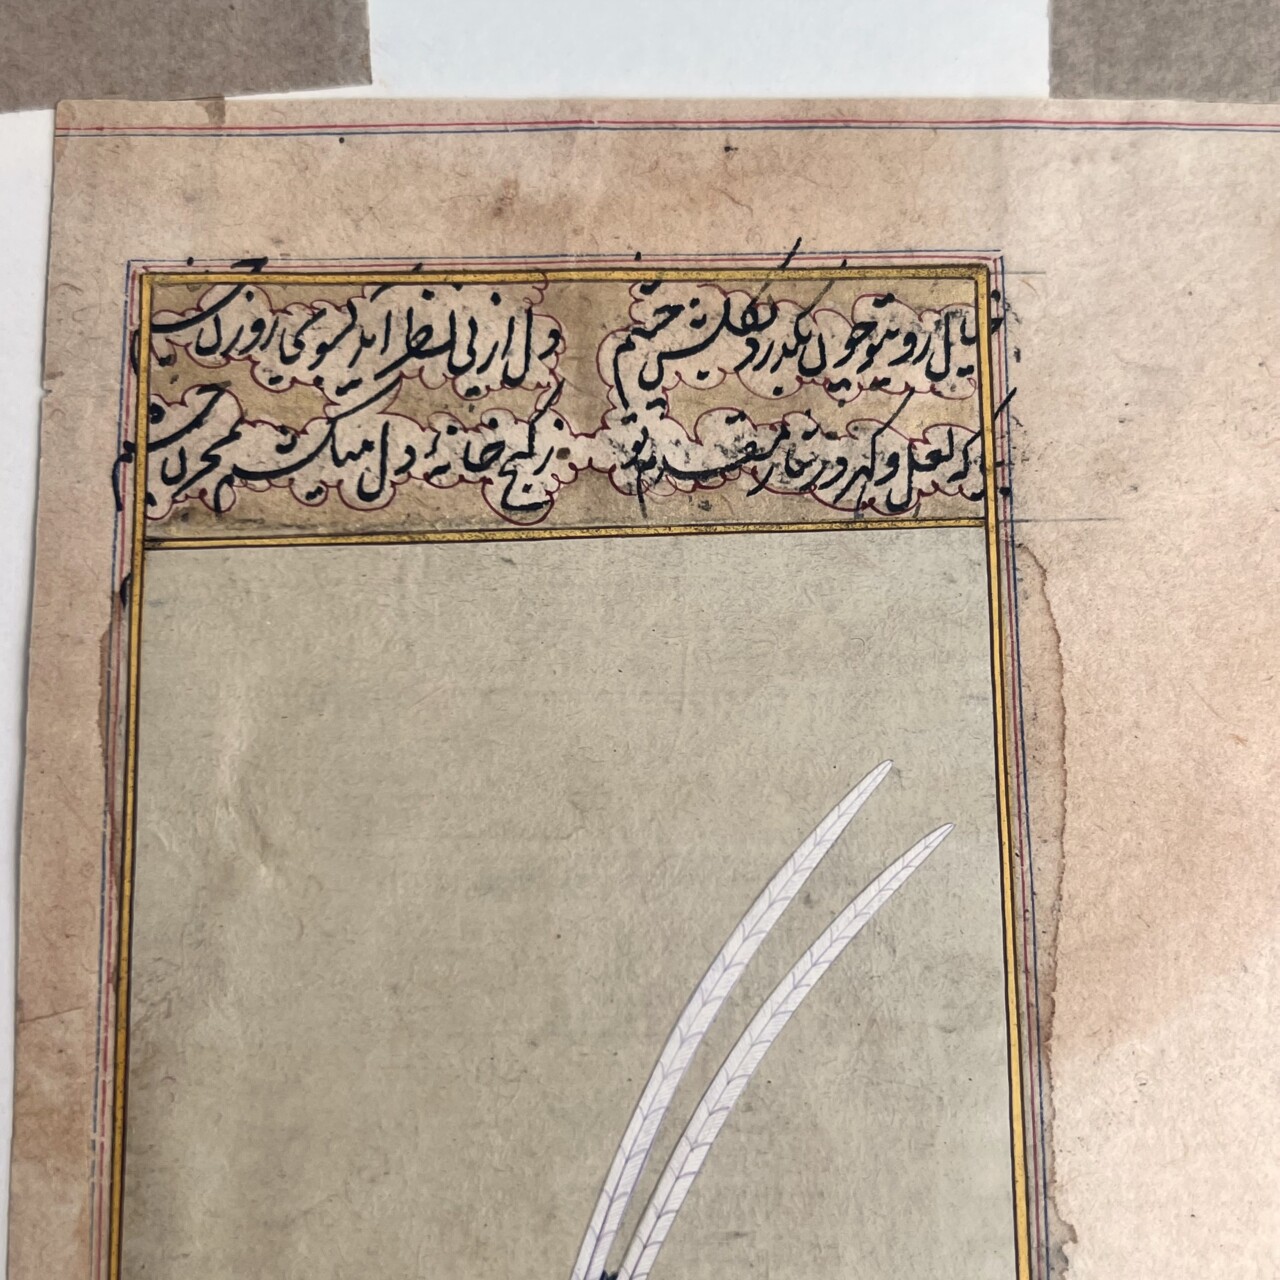 خیال روی تو چون بگذرد بگلشن چشم
دل از پی نظر آید بسوی روزن چشم
که لعل و گهر در نثار مقدم تو
ز گنج خانهٔ دل میکشم بمخزن چشم